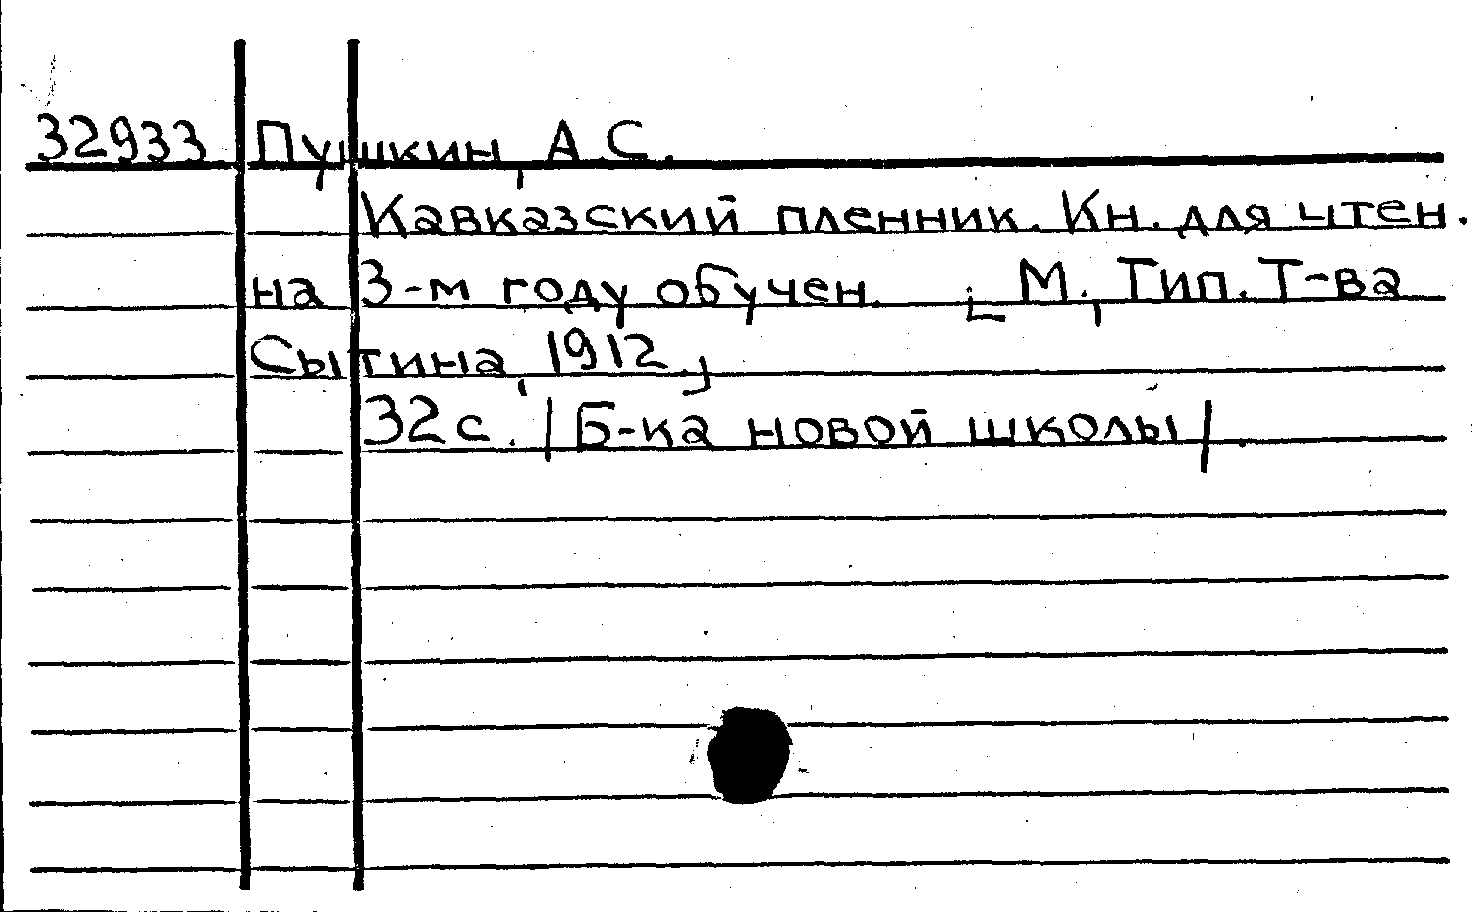 32933 Пушкин, А.С.
Кавказский пленник. Кн. для чтен.
на 3-м году обучен. [М., Тип. Т-ва
Сытина, 1912.]
32 с. /Б-ка новой школы/.